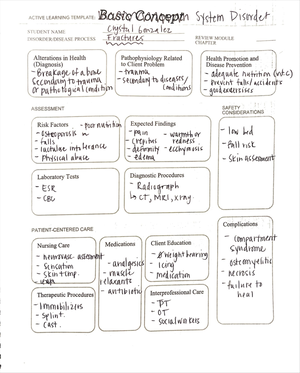 ACTIVE LEARNING TEMPLATE: Basic Concept System Disorder
STUDENT NAME Crystal Gonzalez
DISORDER/DISEASE PROCESS Fractures
REVIEW MODULE CHAPTER
Alterations in Health (Diagnosis)
- Breakage of a bone
secondary to trauma
or pathological condition
Pathophysiology Related to Client Problem
- trauma
- secondary to diseases/
conditions
Health Promotion and Disease Prevention
- adequate nutrition (vit C)
- prevent falls/accidents
- good exercises
ASSESSMENT
SAFETY CONSIDERATIONS
Risk Factors - poor nutrition
- osteoporosis
- falls
- lactulose intolerance
- Physical abuse
Expected Findings
- pain - warmth or
- crepitus redness
- deformity - ecchymosis
- edema
- low bed
- Fall risk
- skin assessment
Laboratory Tests
- ESR
- CBC
Diagnostic Procedures
- Radiograph
CT, MRI, xray
PATIENT-CENTERED CARE
Complications
- compartment
syndrome
- osteomyelitis
- necrosis
- failure to
heal
Nursing Care
- neurovasc assessment
- Sensation
- skin temp.
Medications
- analgesics
- muscle
relaxants
- antibiotic
Client Education
- weight bearing
- icing
- medication
Therapeutic Procedures
- Immobilizers
- Splint
- Cast.
Interprofessional Care
- PT
- OT
- social workers